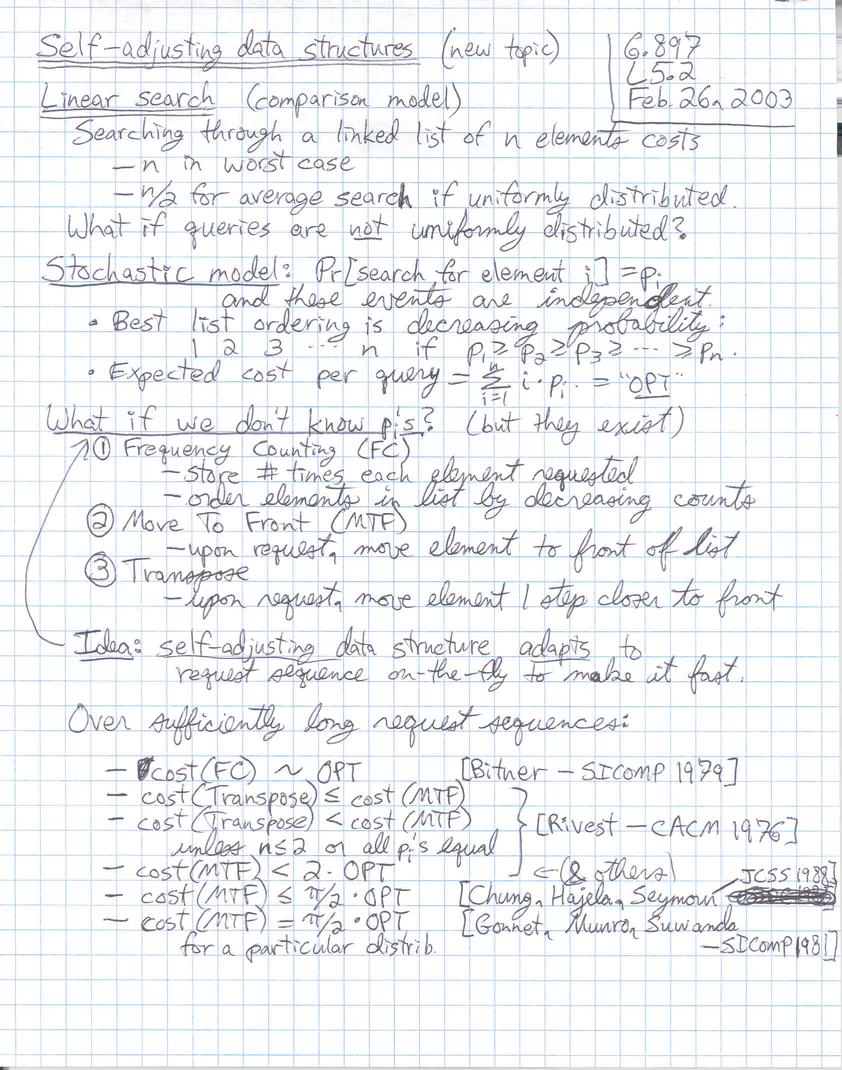 Self-adjusting data structures (new topic)
6.897
L5.2
Feb. 26, 2003
Linear search (comparison model)
Searching through a linked list of n elements costs
— n in worst case
— n/2 for average search if uniformly distributed.
What if queries are not uniformly distributed?
Stochastic model: Pr[search for element i] = pᵢ
and these events are independent.
• Best list ordering is decreasing probability:
1 2 3 ... n if p₁ ≥ p₂ ≥ p₃ ≥ ... ≥ pₙ.
• Expected cost per query = Σᵢ₌₁ⁿ i · pᵢ. = "OPT"
What if we don't know pᵢ's? (but they exist)
① Frequency Counting (FC)
— store # times each element requested
— order elements in list by decreasing counts
② Move To Front (MTF)
— upon request, move element to front of list
③ Transpose
— upon request, move element 1 step closer to front
Idea: self-adjusting data structure adapts to
request sequence on-the-fly to make it fast.
Over sufficiently long request sequences:
— cost(FC) ~ OPT [Bitner — SICOMP 1979]
— cost(Transpose) ≤ cost(MTF)
— cost(Transpose) < cost(MTF) [Rivest — CACM 1976]
unless n≤2 or all pᵢ's equal
— cost(MTF) < 2 · OPT ← (& others)
— cost(MTF) ≤ π/2 · OPT [Chung, Hajela, Seymour JCSS 1988]
— cost(MTF) = π/2 · OPT [Gonnet, Munro, Suwanda
for a particular distrib. — SICOMP 1981]